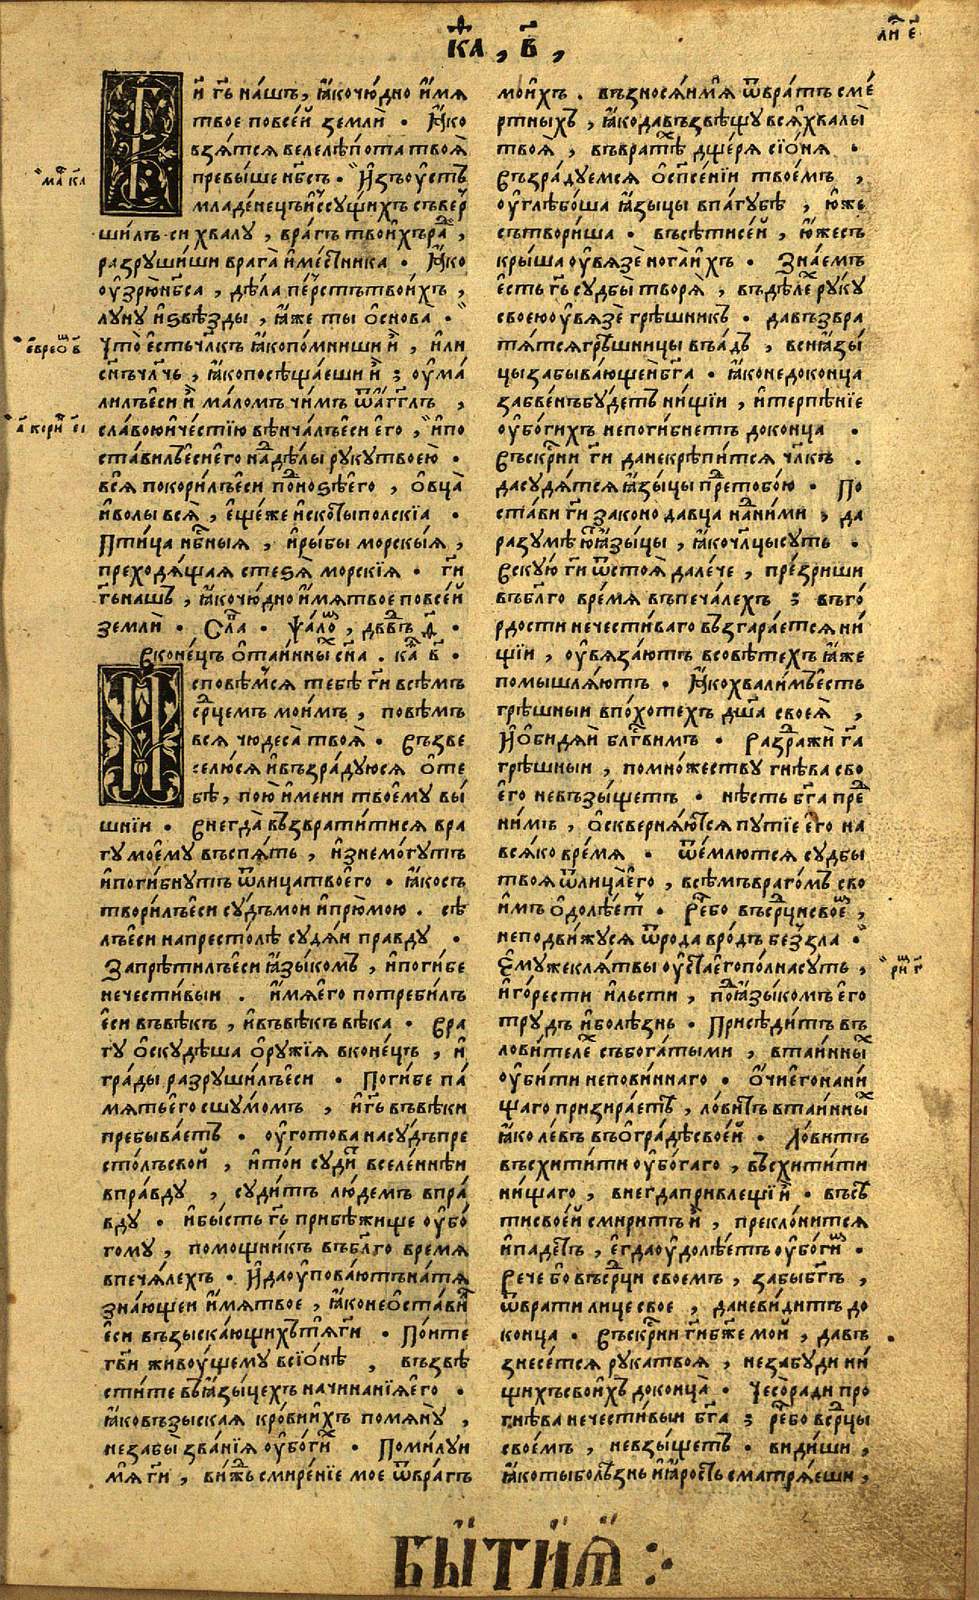 к҃а, в҃,
ли҃ е҃
и҃ гь҃ на́шъ, ꙗ҆́кочю́дно и҆́мѧ
твое повсе́й земли̑ · Ꙗ҆́ко
взѧ́тсѧ велелѣ́пота твоѧ̀
превы́ше нб҃съ · И҆зъоу҆́стъ
младе́нецъи҆ссущихъ съвер
ши́лъ си хвалу̀ , вра́гъ твои́хъра ,
разруши́ши врага̀ и҆ме́стника · Ꙗ҆́ко
оу҆зрю́нб҃са , дѣ́ла пе́рстътвои́хъ ,
луну и҆ѕвѣ́зды , ꙗ҆́же ты ѻ҆снова ·
Что̀ є҆стьчл҃къ ꙗ҆копо́мниши и҆̀ , и҆ли
сн҃ъчл҃чь , ꙗ҆копосѣща́еши и҆̀ ; оу҆ма́
лилъє҆си и҆̀ ма́ломъ чи́мъ ѿа҆́гг҃лъ ,
сла́вою҆иче́стїю вѣнча́лъє҆си є҆го̀ , и҆по
ста́вилъє҆сие҆го̀ надѣ́лы рукутвоею̀ ·
всѧ̀ покори́лъє҆си поноѕѣє҆го̀ , ѻ҆вца̀
и҆волы всѧ̀ , є҆ще́же и҆ско́тыпо́лскїа ·
Пти́ца нб҃ныѧ , и҆ры́бы морскы́ѧ ,
преходѧ́щаѧ стеѕѧ̀ морскїѧ · гд҃и
гь҃нашъ , ꙗ҆кочю́дно и҆́мѧтвое повсе́й
земли̑ · Сла · Ѱало , дв҃въ ѳ҃ ·
Вконе́цъ ѻ҆та́инны сн҃а . ка в҃ ·
сповѣ́мсѧ тебѣ̀ гд҃и всѣ́мъ
ср҃цемъ мои́мъ , повѣ́мъ
всѧ̀ чюдеса̀ твоѧ̀ · Възве
селю́сѧ и҆възра́дуюсѧ ѻ҆те
бѣ̀ , пою̀ и҆́мени твоє҆му̀ вы́
шнїи · Внегда̀ възврати́тисѧ вра
гу мое҆му̀ въспѧ́ть , и҆знемо́гутъ
и҆поги́бнутъ ѿлица̀твоє҆го̀ · ꙗ҆косъ
твори́лъє҆си су́дъмои и҆прю̀мою . сѣ́
лъє҆си напресто́лѣ судѧ́и пра́вду ·
Запрѣти́лъє҆си ꙗ҆зы́комъ , и҆поги́бе
нечести́выи . и҆́мѧє҆го̀ потреби́лъ
є҆си̑ въвѣ́къ , и҆въвѣ́къ вѣ́ка · Вра
гу ѻ҆скудѣ́ша ѻ҆ру́жїѧ вконе́цъ , и҆
гра́ды разруши́лъє҆си · Поги́бе па́
мѧтье҆го̀ сшу́момъ , и҆гь҃ въвѣ́ки
пребыва́етъ · оу҆гото́ва насу́дъпре
сто́лъсво́й , и҆то́и суди́ вселе́ннѣи
впра́вду , су́дитъ лю́демъ впра́
вду · и҆бы́сть гь҃ прибѣ́жище оу҆бо́
гому , помощни́къ въбл҃го вре́мѧ
впеча́лехъ · И҆даоу҆пова́ютънатѧ
зна́ющеи и҆́мѧтвое , ꙗ҆коне҆ѻ҆ста́ви
є҆си̑ възыска́ющихътѧгд҃и · По́ите
гв҃и живоу́щему всїѡ́нѣ , възвѣ
сти́те въꙗ҆зы́цехъ начина́нїѧє҆го̀ ·
ꙗ҆ковъзыска́ѧ кро́вии҆хъ помѧну̀ ,
незабы̀ зва́нїѧ оу҆бо́ги · Поми́луи
мѧ̀ гд҃и , ви́жь смире́нїе моѐ ѿвра́гъ
мои́хъ . възносѧ́имѧ̀ ѿвра́тъ сме́
ртныхъ , ꙗ҆кодавъзвѣщу̀ всѧ̀хвалы̀
твоѧ̀ , въврате дще́рѧ сїѡ́нѧ ·
Възра́дуемсѧ ѻ҆сп҃се́нїи твое́мъ ,
оу҆глѣбо́ша ꙗ҆зы́цы впа́губѣ , ю҆́же
сътвори́ша · въсѣ́тисе́й , ю҆́жесъ
кры́ша оу҆вѧзѐ нога̀и҆́хъ · Зна́емъ
є҆сть гь҃ судьбы̀ творѧ̀ , въдѣ́ле руку̀
своею̀оу҆вѧзѐ грѣ́шникъ · давъзвра
тѧ́тсѧгрѣ́шницы въа́дъ , вси̑ꙗ҆зы́
цызабыва́ющеи҆бг҃а · ꙗ҆конедоконца̀
забве́нъбу́детъ ни́щїи , и҆терпѣ́нїе
оу҆бо́гихъ непоги́бнетъ доконца̀ ·
Въскр҃нии гд҃и данекрѣпи́тсѧ чл҃къ .
дасу́дѧтсѧ ꙗ҆зы́цы претобо́ю · По
ста́ви гд҃и законо да́вца нани́ми , да
разумѣ́ютꙗ҆зы́цы , ꙗ҆кочл҃цысуть ·
Вскую̀ гд҃и ѿстоѧ̀ дале́че , пре́зриши
въбл҃го вре́мѧ въпеча́лехъ ; въго́
рдости нечести́ваго възгара́етсѧ ни́
щїи , оу҆вѧза́ютъ всовѣ́техъ ꙗ҆́же
помышлѧ́ютъ · Ꙗ҆́кохвали́мъє҆сть
грѣ́шныи впо́хотехъ дш҃а своеѧ̀ ,
И҆ѻ҆би́дѧи бл҃гви́мъ · Разражи̑ га
грѣ́шныи , помно́жеству гнѣ́ва сво
є҆го̀ невъзы́щетъ · нѣ́сть бг҃а пре
ни́мъ , ѻ҆сквернѧ́ютсѧ путїе є҆го̀ на
всѧ́ко вре́мѧ · ѿе́млютсѧ судьбы̀
твоѧ̀ ѿлица̀є҆го̀ , всѣ́мъврагомъ сво
и҆́мъ ѻ҆долѣ́ет · Ре́бо въср҃цисвое ,
неподви́жусѧ ѿро́да вро́дъ безъзла ·
Є҆му́жеклѧ́твы оу҆ста̀є҆го̀по́лнасуть ,
и҆го́рести и҆льсти , поꙗ҆зы́комъ є҆го̀
тру́дъ и҆болѣ́знь · Присѣди́тъ въ
лови́теле събога́тыми , вта́инны
оу҆би́ти непови́ннаго · ѻ҆́чиє҆го̀нани́
щаго призира́етъ , ло́витъ вта́инны
ꙗ҆́ко ле́въ въѻ҆гра́дѣсвое́й · Ло́витъ
въсхити́ти оу҆бо́гаго , въсхити́ти
ни́щаго , внегдапривлещї и҆̀ · въсѣ
тисвое́й смири́тъ и҆̀ , преклони́тсѧ
и҆паде́тъ , є҆гдаоу҆долѣ́етъ оу҆бо́ги ·
Рече̑ бо въср҃ци свое́мъ , забыбг҃ъ ,
ѿврати̑ лицѐ своѐ , даневи́дитъ до
конца̀ · Въскр҃нии гд҃ибж҃е мо́й , давъ
знесе́тсѧ рука̀твоѧ̀ , незабу́ди ни́
щихъсвои́хъ доконца̀ · Чесо̀ради про
гнѣ́ва нечести́выи бг҃а ; ре́бо вср҃цы
свое́мъ , невзы́щетъ · ви́диши ,
ꙗ҆коты̀болѣ́знь и҆ꙗ҆́рость сматрѧ́еши ,
БЫТИѦ